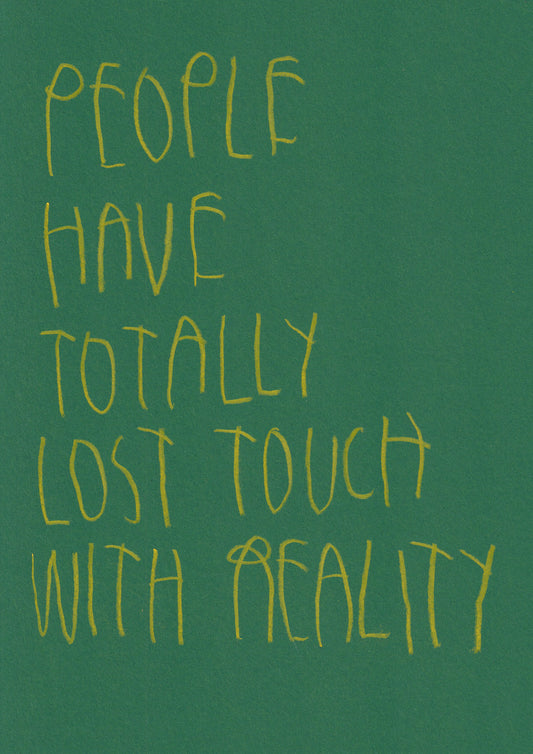 PEOPLE
HAVE
TOTALLY
LOST TOUCH
WITH REALITY